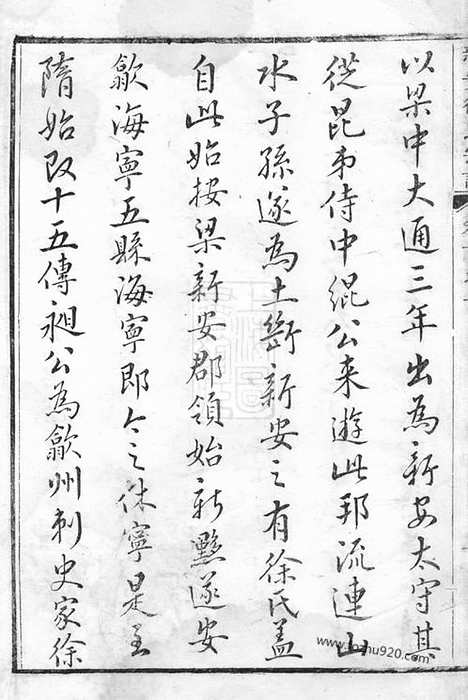 以梁中大通三年出為新安太守其
從昆弟侍中緄公来遊此邦流連山
水子孫遂為土斷新安之有徐氏盖
自此始按梁新安郡領始新黟遂安
歙海寧五縣海寧即今之休寧是至
隋始改十五傳昶公為歙州刺史家徐